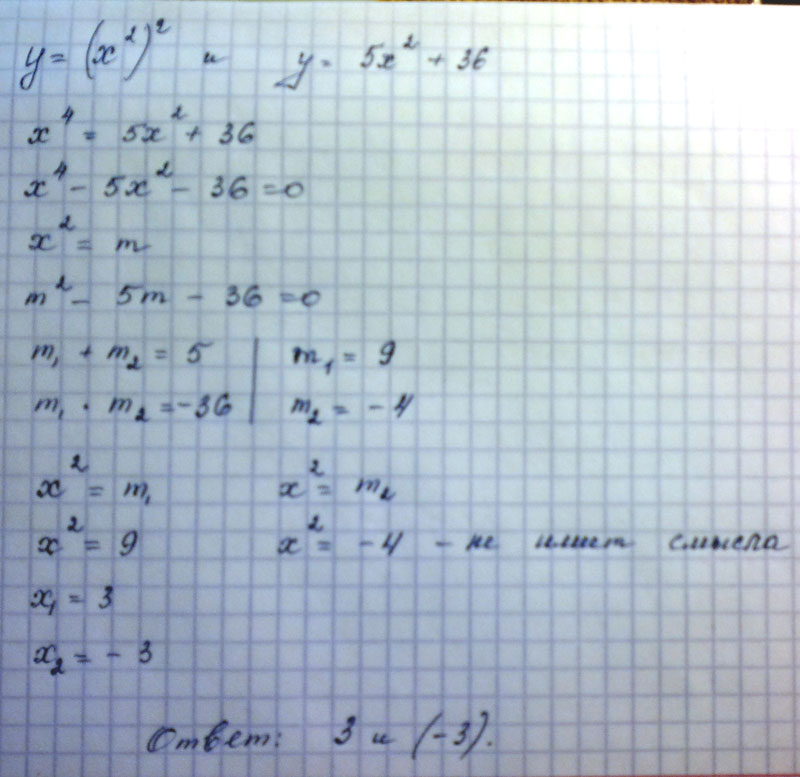 y = (x²)² и y = 5x² + 36
x⁴ = 5x² + 36
x⁴ - 5x² - 36 = 0
x² = m
m² - 5m - 36 = 0
m₁ + m₂ = 5 | m₁ = 9
m₁ · m₂ = -36 | m₂ = -4
x² = m₁ x² = m₂
x² = 9 x² = -4 - не имеет смысла
x₁ = 3
x₂ = -3
Ответ: 3 и (-3).